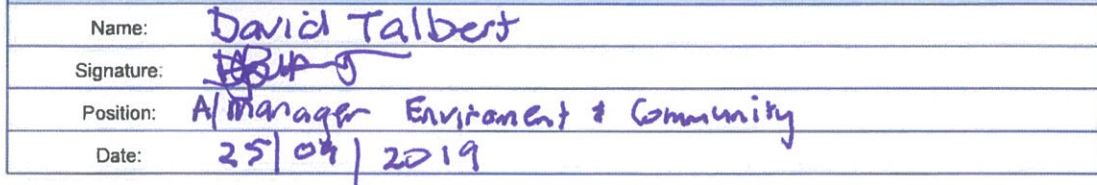 Name: David Talbert
Signature:
Position: A/Manager Enviroment & Community
Date: 25/09/2019